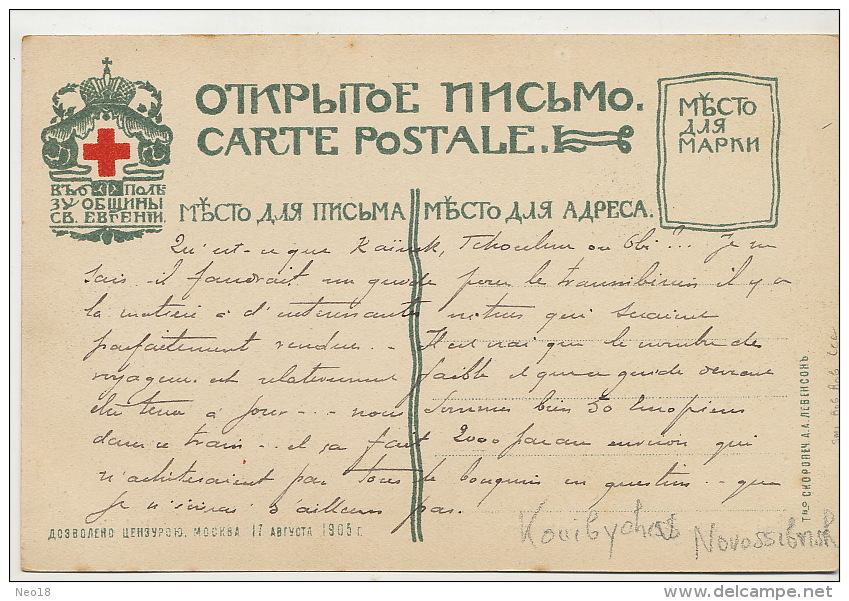 ОТКРЫТОЕ ПИСЬМО.
CARTE POSTALE.
МѢСТО
ДЛЯ
МАРКИ
ВЪ ПОЛЬ
ЗУ ОБЩИНЫ
СВ. ЕВГЕНІИ.
МѢСТО ДЛЯ ПИСЬМА
МѢСТО ДЛЯ АДРЕСА.
Qu'est-ce que Kaïnsk, Tchoulim ou Obi?... Je ne
sais - il faudrait un guide pour le transsibérien il y a
la matière à d'intéressantes notes qui seraient
parfaitement vendues. - Il est vrai que le nombre de
voyageurs est relativement faible et que ce guide devrait
être tenu à jour - - - nous sommes bien 50 Européens
dans ce train - - et ça fait 2000 par an environ qui
n'achèteraient pas tous le bouquin en question - que
je n'écrirai d'ailleurs pas.
ДОЗВОЛЕНО ЦЕНЗУРОЮ, МОСКВА 17 АВГУСТА 1905 г.
Т-во СКОРОПЕЧ. А.А. ЛЕВЕНСОНЪ
Kouibychev
Novossibirsk
Neo18
delcampe.net